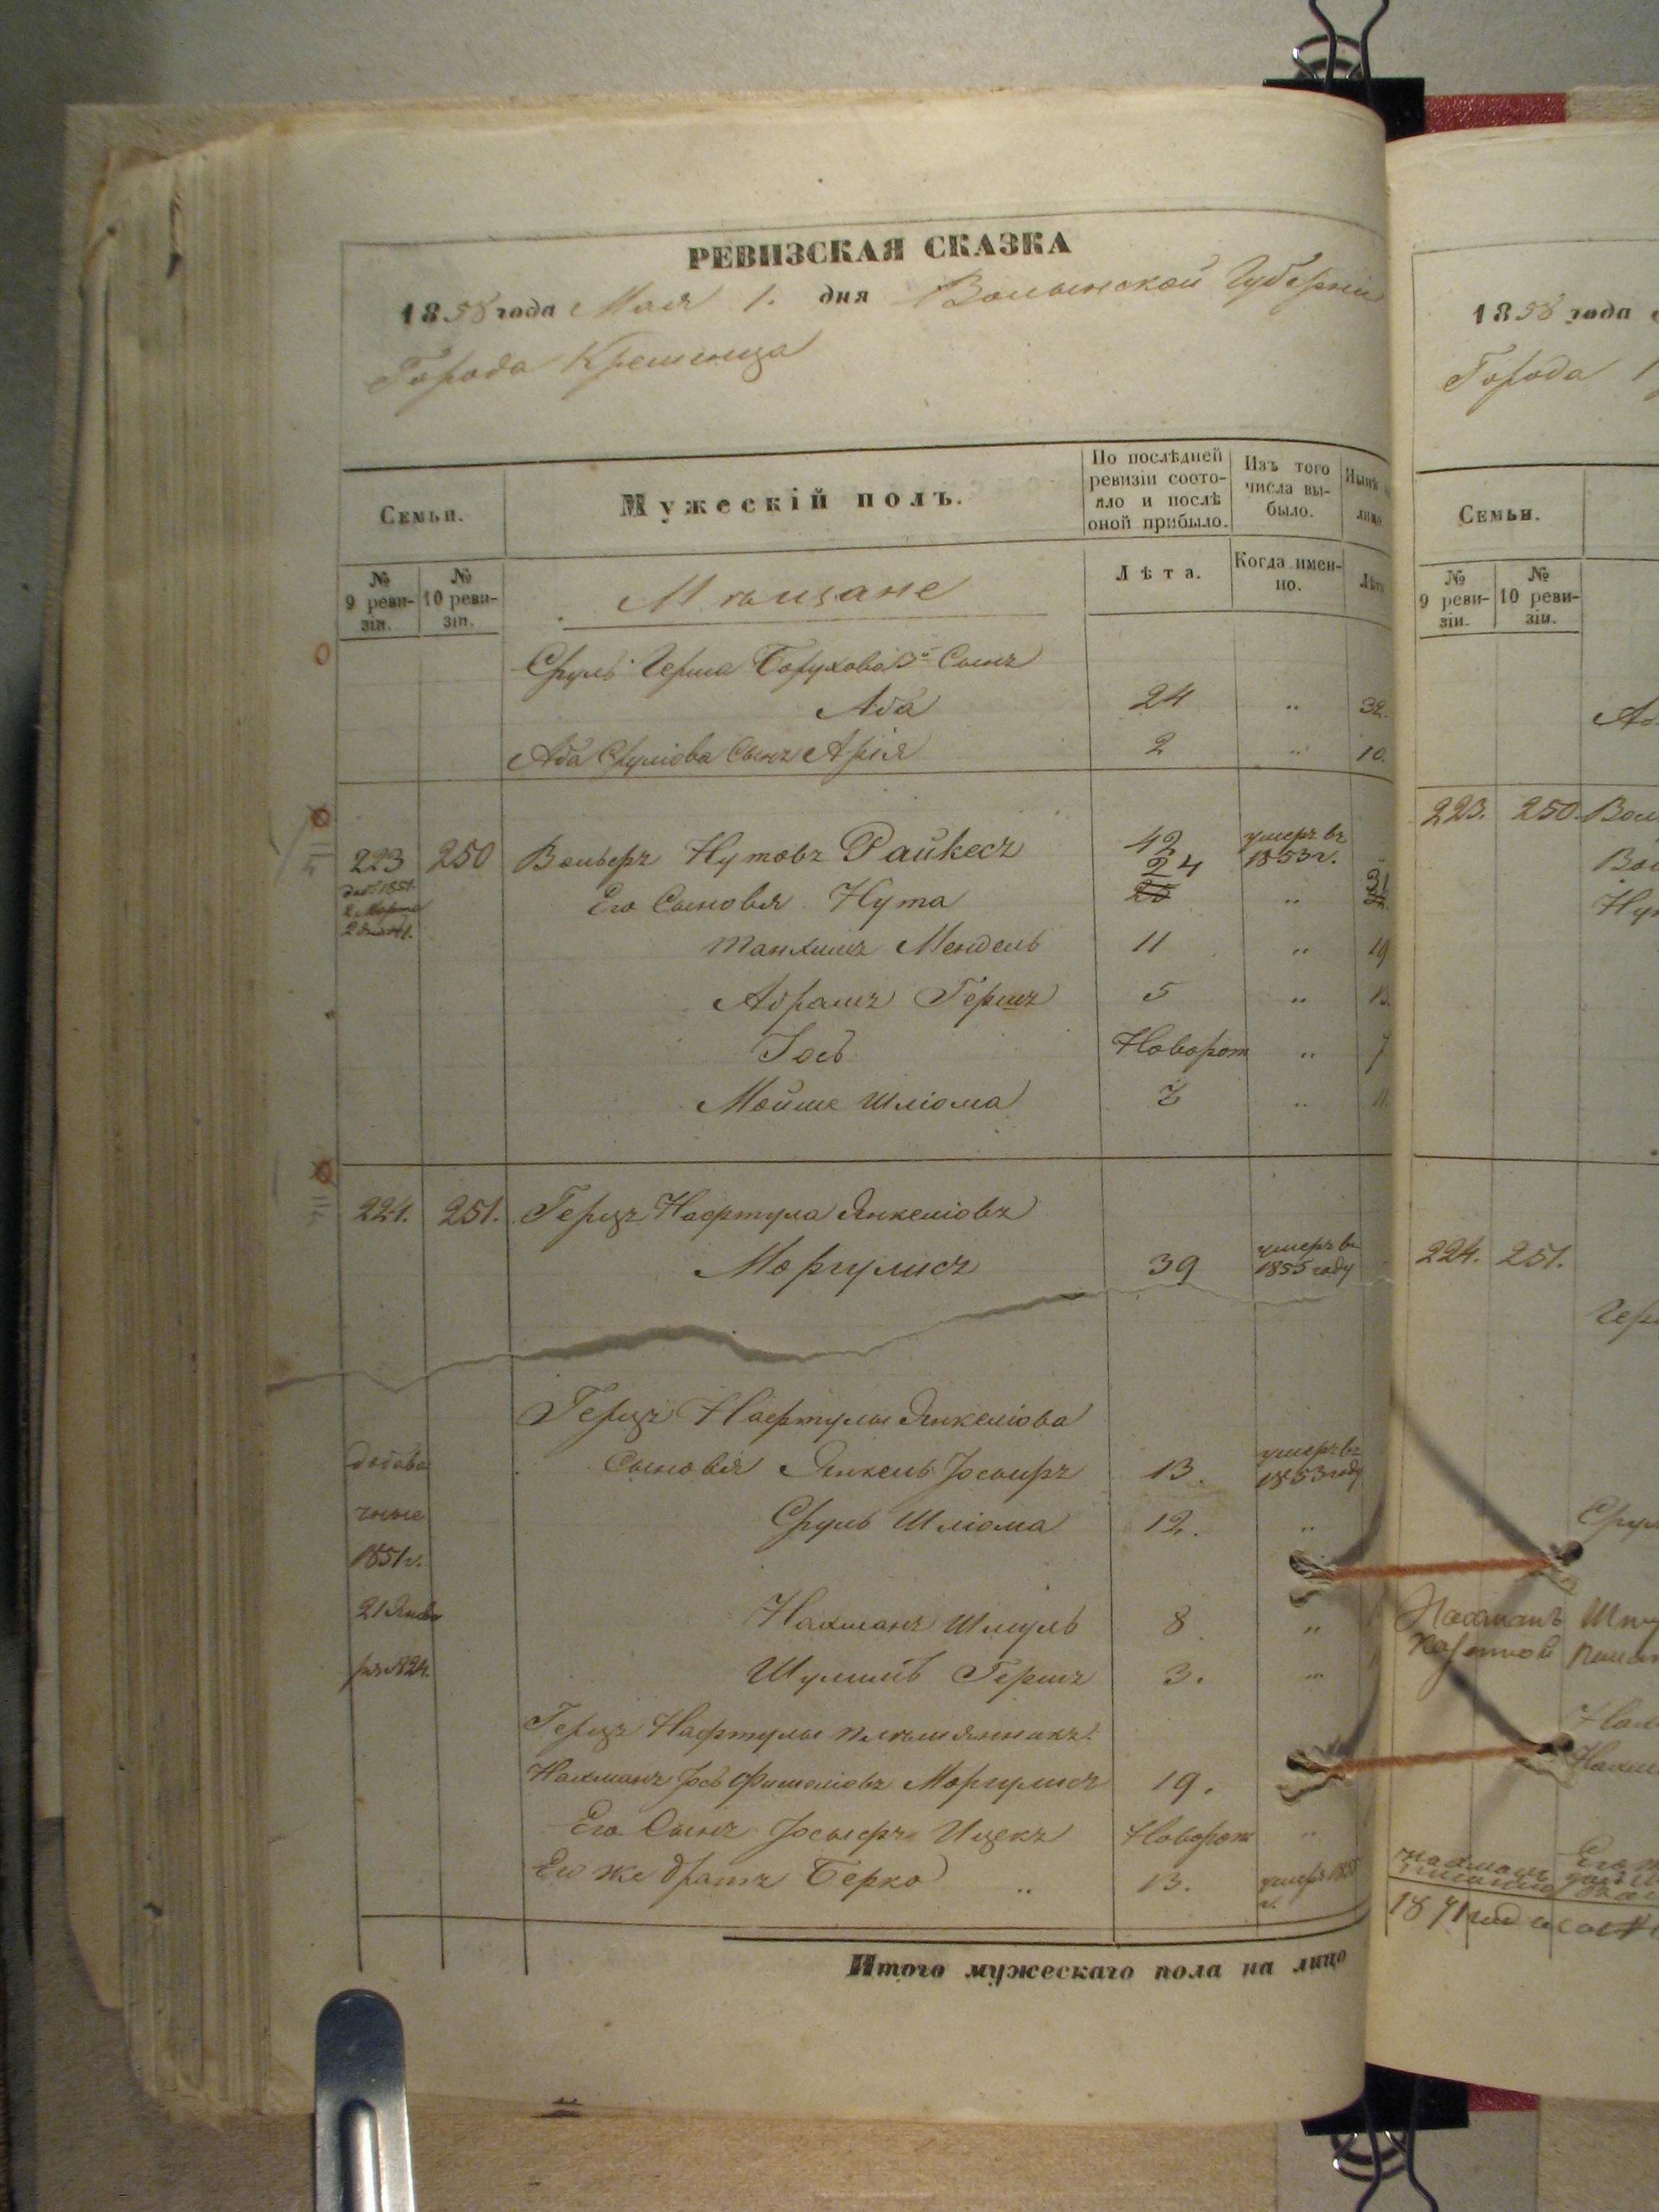 РЕВИЗСКАЯ СКАЗКА
1858 года Мая 1. дня Волынской Губернии
Города Кременца
Семьи.
Мужескій полъ.
По послѣдней ревизіи состо-
яло и послѣ
оной прибыло.
Изъ того
числа вы-
было.
Нынѣ
лицо
№
9 реви-
зіи.
№
10 реви-
зіи.
Мѣщане
Лѣта.
Когда имен-
но.
Лѣта
Сруль Герша Борухова 3й Сынъ
Аба 24 „ 32.
Аба Сруліова Сынъ Арія 2 „ 10.
223 250 Вольфъ Нутовъ Райкесъ 42 умеръ въ 1853 г.
Его Сыновья Нута 24 „ 31
Танхимъ Мендель 11 „ 19
Абрамъ Гершъ 5 „ 13.
Іось Новорож „ 7
Мойше Шліома „ 11.
224. 251. Герцъ Нафтула Янкеліовъ
Моргулисъ 39 умеръ въ 1855 году
Герцъ Нафтулы Янкеліова
Сыновья Янкель Іосифъ 13. умеръ въ 1853 году
Сруль Шліома 12. „
Нахманъ Шмуль 8 „
Шулимъ Гершъ 3. „
добавочные
1851 г.
21 Янва
ря №24.
Герцъ Нафтулы племянникъ
Нахманъ Іось Фишеліовъ Моргулисъ 19.
Его Сынъ Іосифъ Ицекъ Новорож „
Его же братъ Берко „ 13. умеръ 1855 г.
Итого мужескаго пола на лицо
1858 года
Города
Семьи.
№
9 реви-
зіи.
№
10 реви-
зіи.
223. 250.
224. 251.